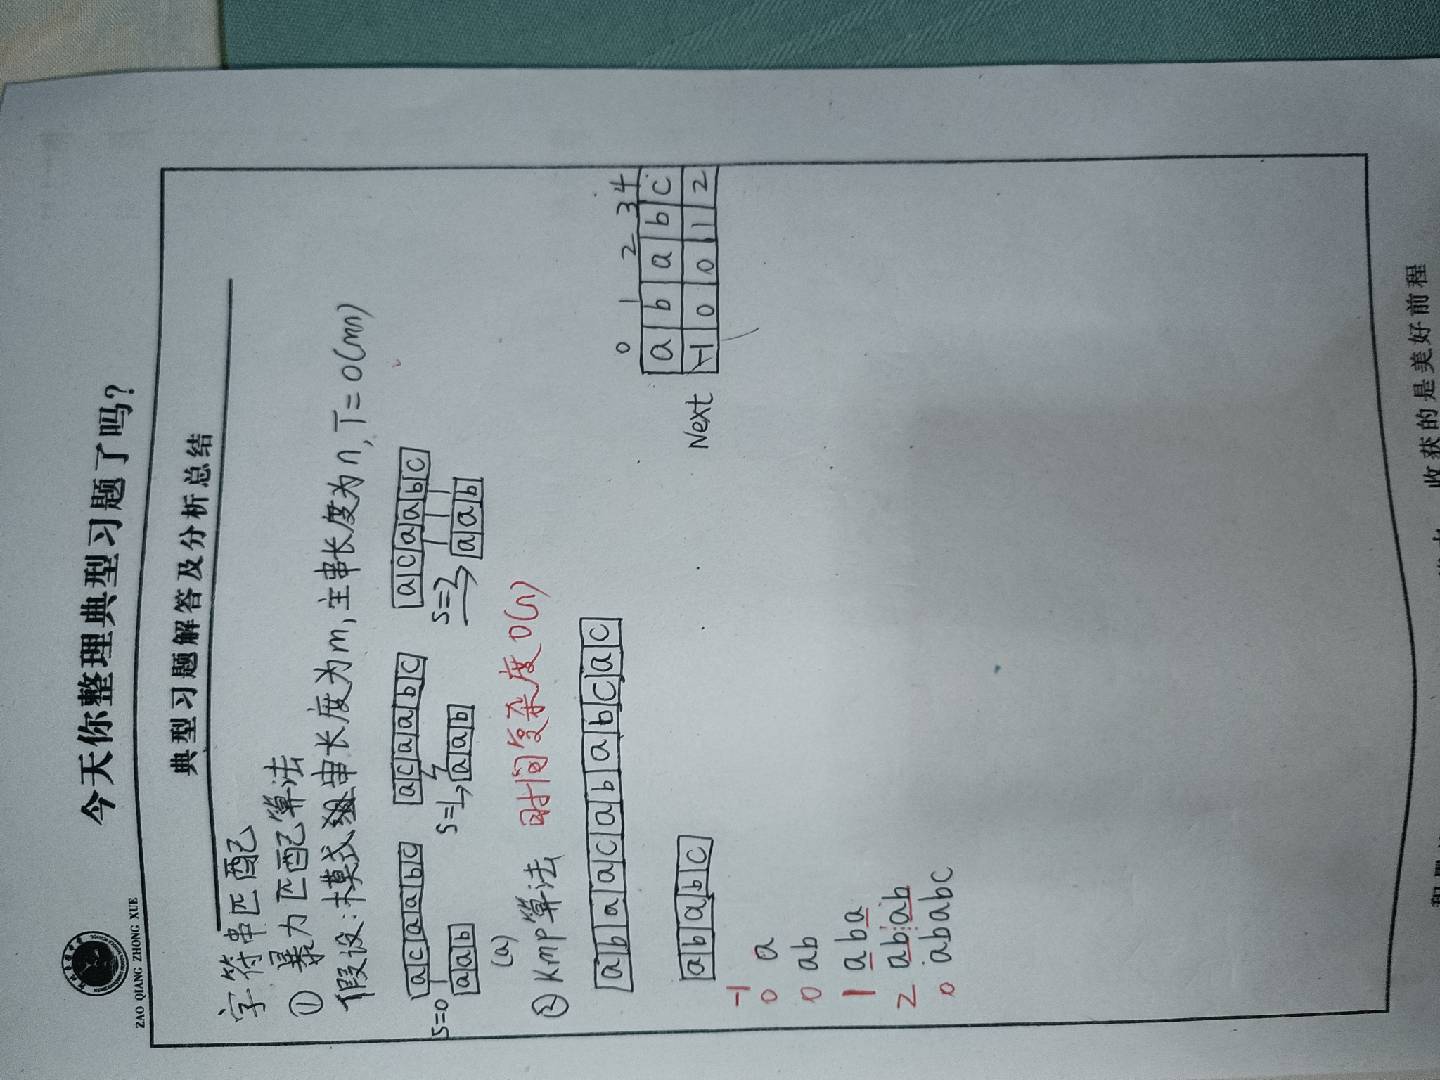 ZAO QIANG ZHONG XUE
今天你整理典型习题了吗?
典型习题解答及分析总结
字符串匹配
① 暴力匹配算法
假设:模式串长度为m,主串长度为n,T=O(mn)
a c a a b c
a c a a b c
a c a a b c
S=0
S=1
S=2
a a b
a a b
a a b
(a)
② Kmp算法 时间复杂度O(n)
a b a a c a b a b c a c
0 1 2 3 4
a b a b c
Next -1 0 0 1 2
a b a b c
-1
0 a
0 ab
1 aba
2 abab
0 ababc
收获的是美好前程